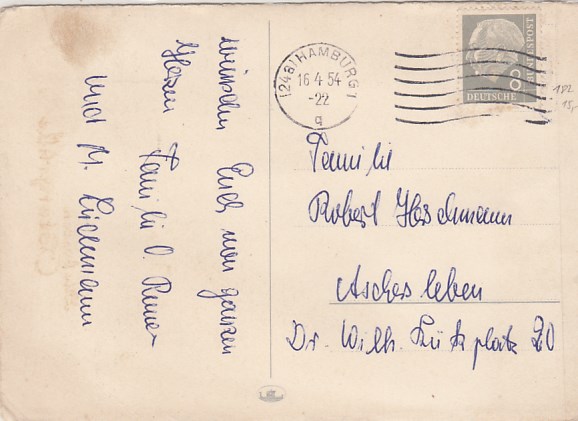 wünschen Euch von ganzen
Herzen Familie O.
und M.
(24a) HAMBURG 1
16.4.54
-22
q
8
DEUTSCHE BUNDESPOST
182
15,-
Familie
Robert
Aschersleben
Dr. Wilh. Külz platz 20